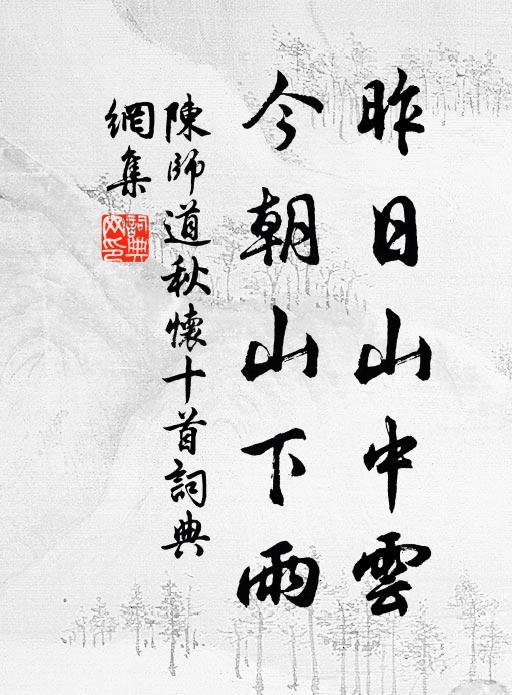 昨日山中雲
今朝山下雨
陳師道秋懷十首詞典
網集
詞典
网印